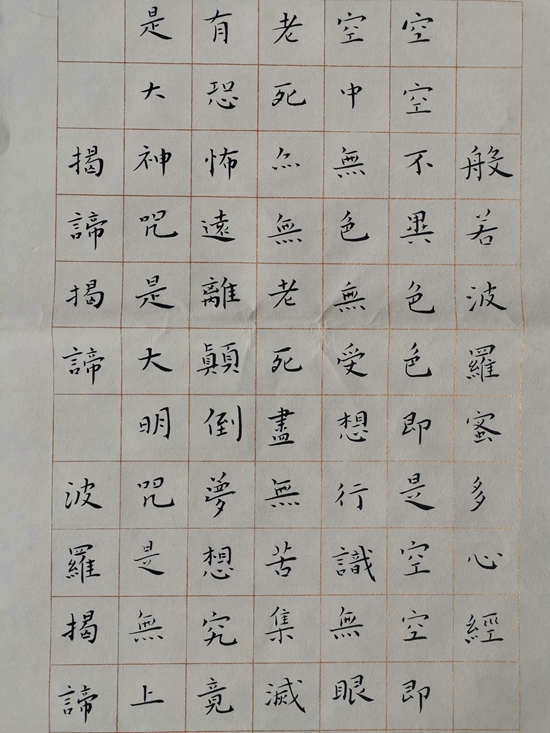 般若波羅蜜多心經
空空不異色色即是空空即
空中無色無受想行識無眼
老死亦無老死盡無苦集滅
有恐怖遠離顛倒夢想究竟
是大神咒是大明咒是無上
揭諦揭諦 波羅揭諦